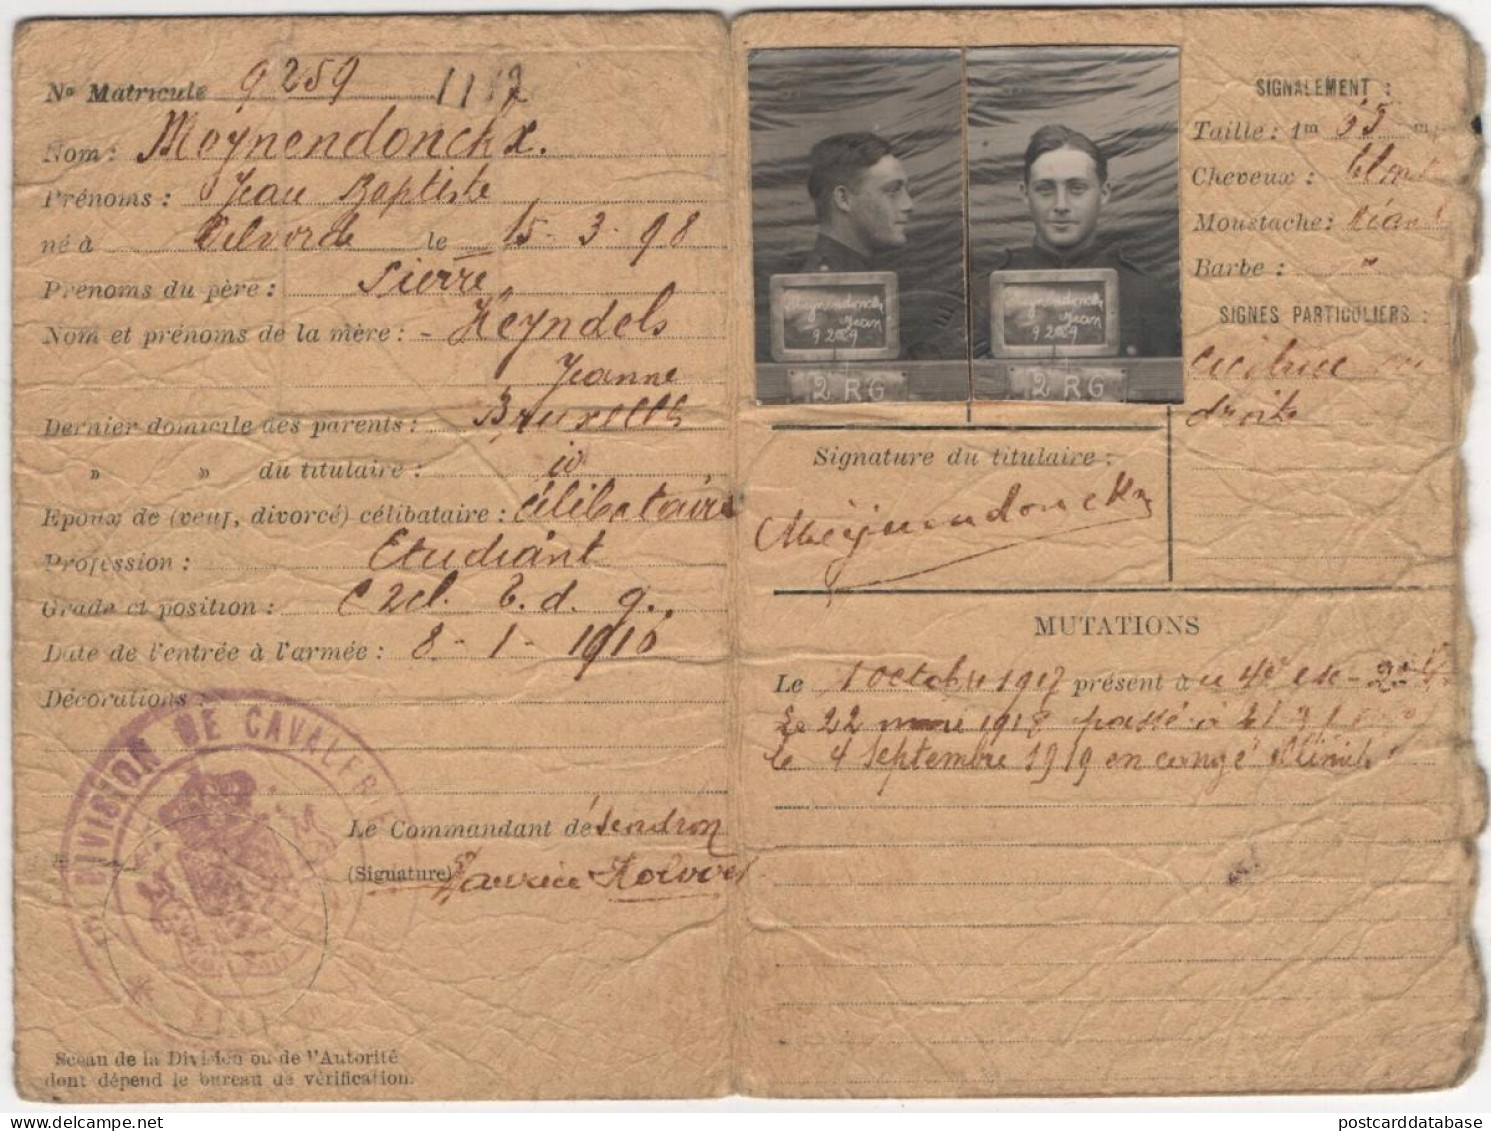 No Matricule 9259 1112
Nom: Meynendonckx.
Prénoms: Jean Baptiste
né à Vilvorde le 15-3-98
Prénoms du père: Pierre
Nom et prénoms de la mère: - Heyndels
Jeanne
Dernier domicile des parents: Bruxelles
» » du titulaire: id
Epoux de (veuf, divorcé) célibataire: célibataire
Profession: Etudiant
Grade et position: C 2cl.
Date de l'entrée à l'armée: 8-1-1916
Décorations:
DIVISION DE CAVALERIE
Le Commandant d'escadron
(Signature) Maurice
Sceau de la Division ou de l'Autorité
dont dépend le bureau de vérification.
Meynendonckx
Jean
9259
2 RG
Meynendonckx
Jean
9259
2 RG
SIGNALEMENT:
Taille: 1m 65 cm,
Cheveux: blonds
Moustache: néant
Barbe: "
SIGNES PARTICULIERS:
droite
Signature du titulaire:
Meynendonckx
MUTATIONS
Le 1 octobre 1917 présent à
Le 22 1918 passé à
le 4 septembre 1919 en congé illimité
postcarddatabase